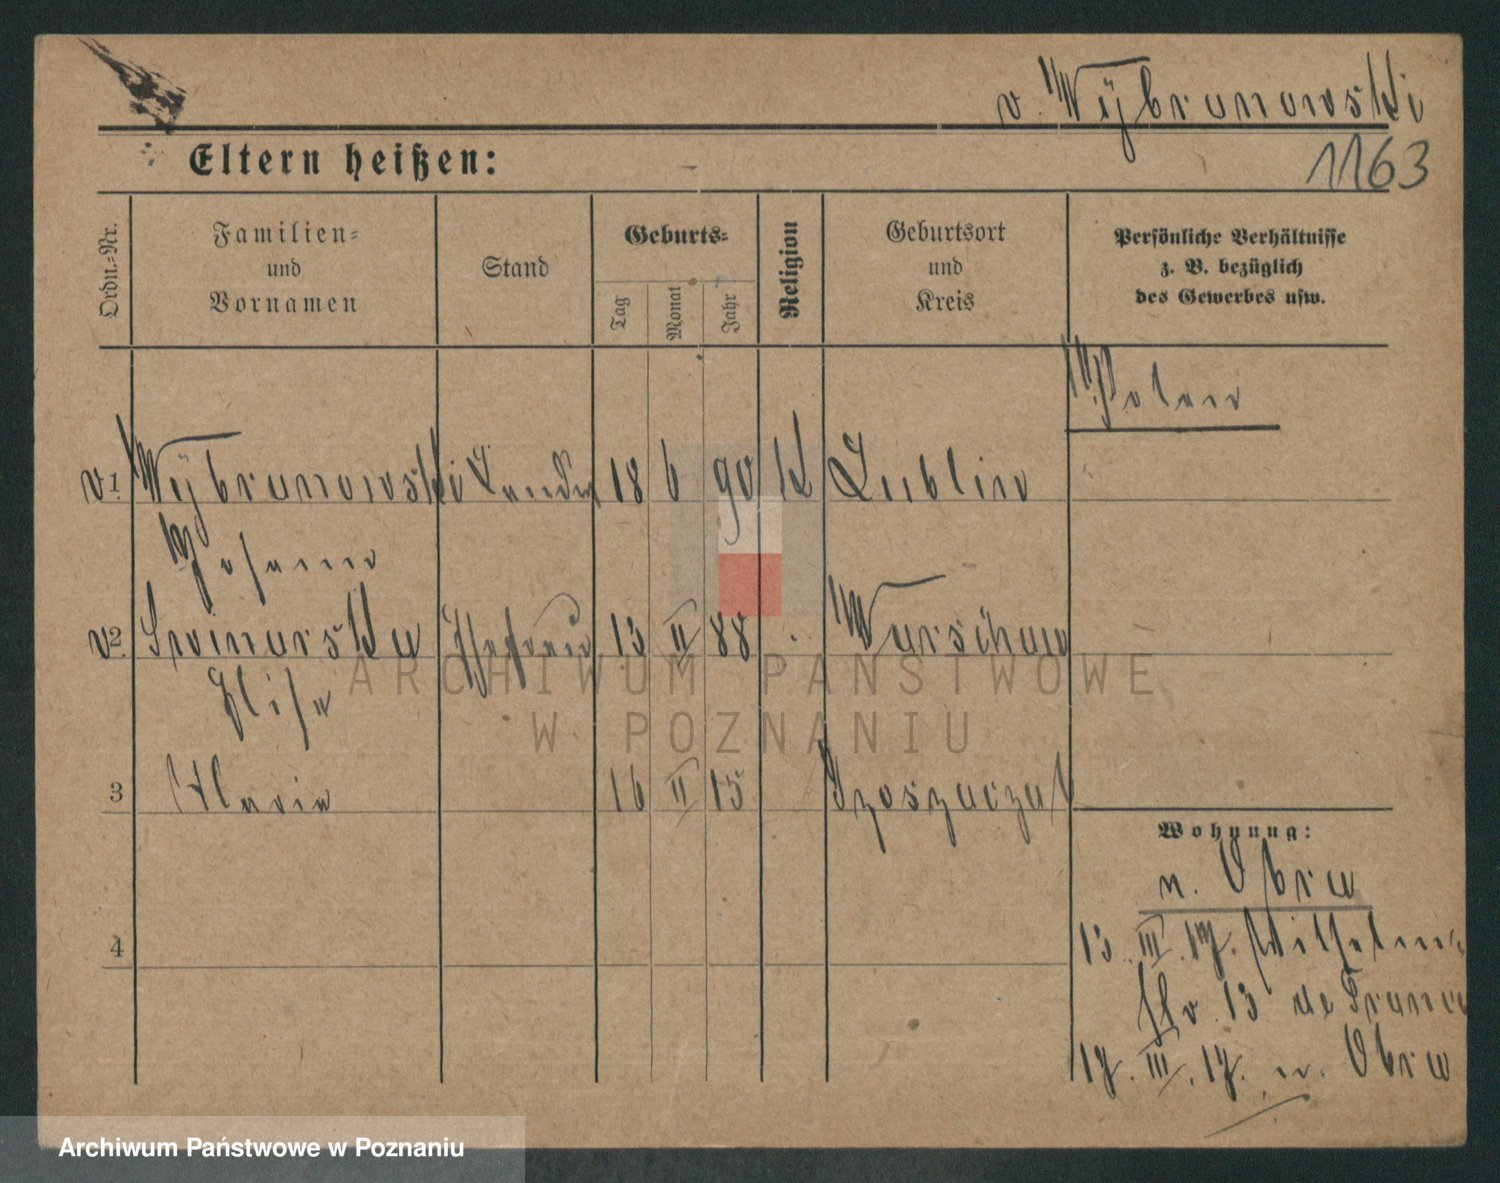 v. Wÿbranowski
1163
Eltern heißen:
Ordn.-Nr.
Familien-
und
Vornamen
Stand
Geburts-
Tag
Monat
Jahr
Religion
Geburtsort
und
Kreis
Persönliche Verhältnisse
z. B. bezüglich
des Gewerbes usw.
Polen
v 1 Wÿbranowski 18 6 90 K Lublin
v 2 13 II 88 Warschau
Elise
3 Maria 16 II 15
4
Wohnung:
n. Obra
13. III. 17. Wilhelm
13 de
17. III. 17. n. Obra
ARCHIWUM PAŃSTWOWE
W POZNANIU
Archiwum Państwowe w Poznaniu